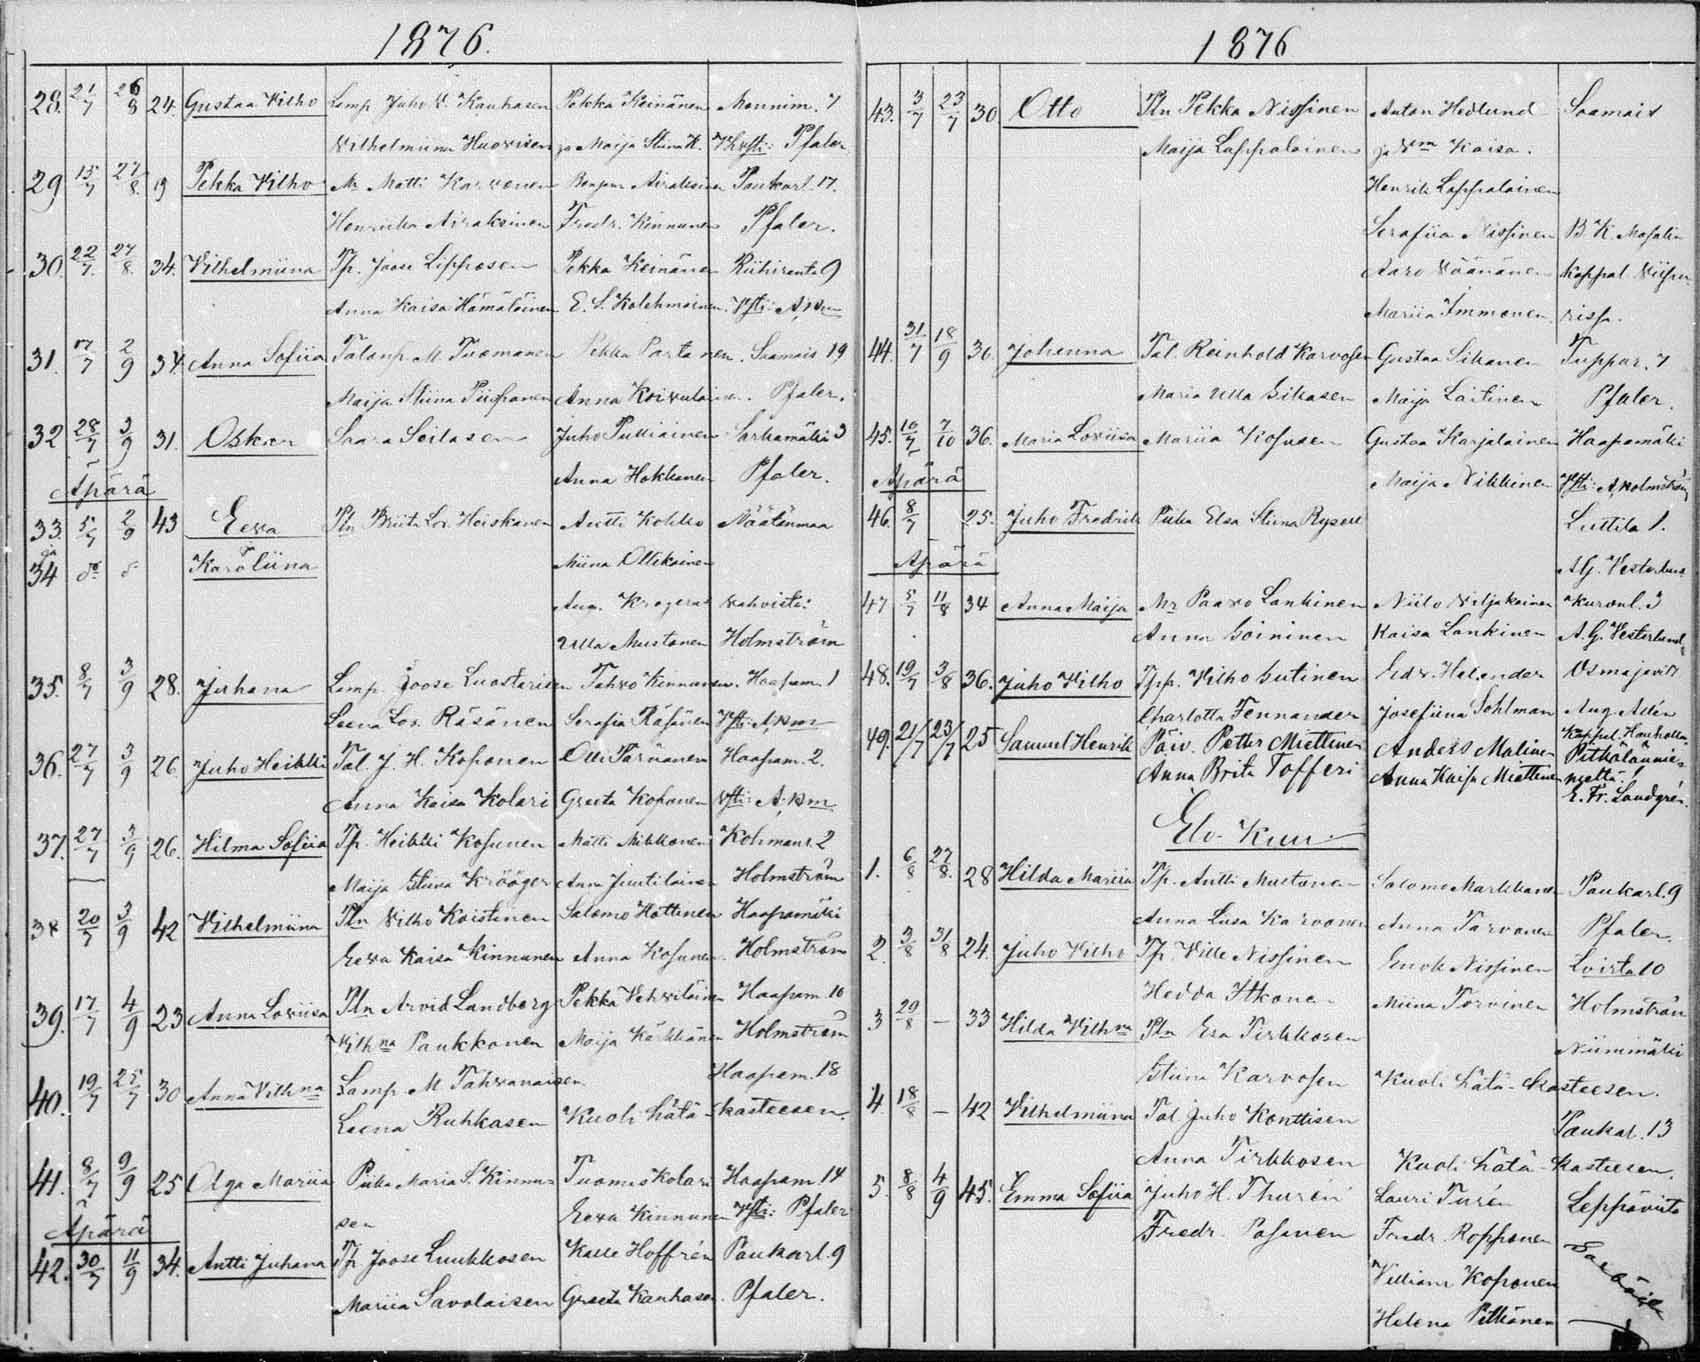 1876.
28. 21/7 26/8 24. Gustaa Vilho Lamp. Juho V. Kauhasen Pekka Keinänen Mannim. 7
Vilhelmiina Huovisen ja Maija Stiina K. Pfaler
29 15/7 27/8 19 Pekka Vilho Mr. Matti Karvonen Airaksinen Paukarl. 17.
Henriika Airaksinen Fredr. Kinnunen Pfaler.
30. 22/7 27/8 34. Vilhelmiina Tp. Joose Lipposen Pekka Keinänen Riihiranta 9
Anna Kaisa Hämäläinen E. S. Kolehmainen
31. 17/7 2/9 34. Anna Sofiia M. Tuomanen Pekka Partanen. Saamais 19
Maija Stiina Piipponen Anna Koivulainen. Pfaler.
32 28/7 3/9 31. Oskar Saara Soilasen Juho Pulliainen Sarkamäki 3
Äpärä Anna Hokkanen Pfaler.
33. 5/7 2/9 43 Eeva Ptn Briita Lov. Heiskanen Antti Kohko Näätänmaa
ja
34 Karoliina Miina Ollikainen
Aug. Krogerus vahvisti:
Ulla Mustonen Holmström
35. 8/7 3/9 28. Juhana Lamp. Joose Luostarisen Tahvo Kinnunen. Haapam. 1
Leena Lov. Räsänen Serafia Räsänen
36. 27/7 3/9 26. Juho Heikki Tal. J. H. Koponen Olli Tarvanen Haapam. 2.
Anna Kaisa Kolari Greeta Koponen
37. 27/7 3/9 26. Hilma Sofiia Tp. Heikki Kosunen Matti Mikkonen Kohmans. 2
Maija Stiina Krööger Anna Juutilainen Holmström
38 20/7 3/9 42 Vilhelmiina Ptn Vilho Koistinen Salomo Hottinen Haapamäki
Eeva Kaisa Kinnunen Anna Kosunen. Holmström
39. 17/7 4/9 23 Anna Loviisa Ptn Arvid Landberg Pekka Vehviläinen Haapam. 16
Vilhna Paukkonen Maija Kärkkänen Holmström
40. 19/7 25/7 30 Anna Vilhna Lamp. M. Tahvanaisen Haapam. 18
Leena Ruhkasen Kuoli hätä-kasteesen.
41. 8/7 9/9 25 Olga Mariia Piika Maria S. Kinnu- Tuomas Kolari Haapam. 14
Äpärä sen Eeva Kinnunen Vsti: Pfaler
42. 30/7 11/9 34. Antti Juhana Tp. Joose Luukkosen Kalle Hoffrén Paukarl. 9
Mariia Savolaisen Greeta Kauhasen. Pfaler.
1876
43. 3/7 23/7 30. Otto Ptn Pekka Nissinen Anton Hedlund Saamais
Maija Lappalainen ja Vm Kaisa.
Henrik Lappalainen
Serafiia Nissinen B. K.
Aaro Väänänen Kappal.
Mariia Immonen. rissa.
44. 31/7 18/9 36. Johanna Tal. Reinhold Karvosen Gustaa Sikanen Tuppur. 7
Maria Ulla Sikasen Maija Laitinen Pfaler.
45. 10/7 7/10 36. Maria Loviisa Mariia Kosusen Gustaa Karjalainen Haapamäki
Äpärä Maija Nikkinen Vsti: A. Holmström
46. 8/7 25. Juho Fredrik Piika Elsa Stiina Ryseve Luttila 1.
Äpärä A. G. Vesterlund
47 5/7 11/8 34 Anna Maija Mr Paavo Lankinen Niilo Viljakainen Kurenl. 3
Anna Soininen Kaisa Lankinen A. G. Vesterlund
48. 19/7 3/8 36. Juho Vilho Tpp. Vilho Sutinen Edv. Helander Osmajärvi
Charlotta Fennander Josefiina Sohlman Aug. Adén
49. 21/7 23/7 25 Samuel Henrik Päiv. Petter Miettinen Anders Malinen Pitkälännie-
Anna Brita Tofferi Anna Kaisa Miettinen mellä.
E. Fr. Landgrén.
Elo-Kuu
1. 6/8 27/8. 28 Hilda Mariia Tp. Antti Mustonen Salomo Markkanen Paukarl. 9
Anna Liisa Karvonen Anna Tarvanen Pfaler.
2. 3/8 31/8 24. Juho Vilho Tp. Ville Nissinen Enok Nissinen Loirla 10
Hedda Itkonen Miina Torvinen Holmström
3 29/8 — 33 Hilda Vilhna Ptn Esa Tirkkosen Niinimäki
Stiina Karvosen Kuoli hätä-kasteesen.
4. 18/8 — 42 Vilhelmiina Tal. Juho Konttisen Paukarl. 13
Anna Tirkkosen Kuoli hätä-kasteesen.
5. 8/8 4/9 45. Emma Sofiia Juho H. Thurén Lauri Turén Leppävirta
Fredr. Pasanen Fredr. Ropponen
Villiam Koponen
Helena Pitkänen